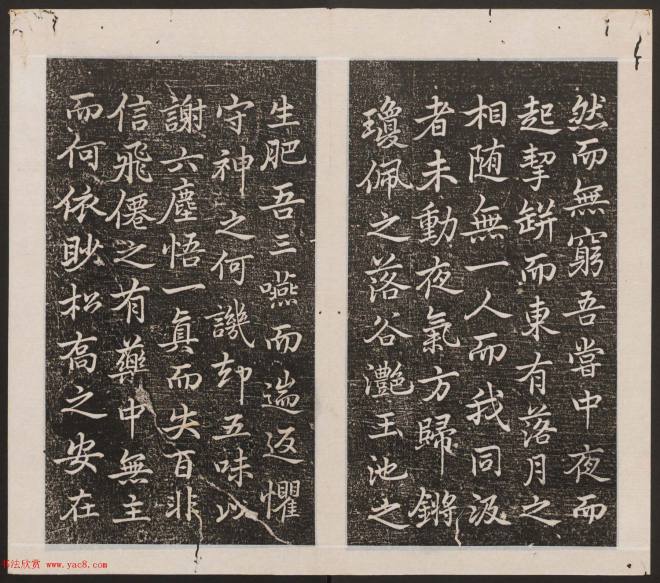 然而無窮吾嘗中夜而
起挈缾而東有落月之
相随無一人而我同汲
者未動夜氣方歸鏘
瓊佩之落谷灔玉池之
生肥吾三嚥而遄返懼
守神之何譏却五味以
謝六塵悟一真而失百非
信飛僊之有藥中無主
而何依眇松喬之安在
书法欣赏 www.yac8.com